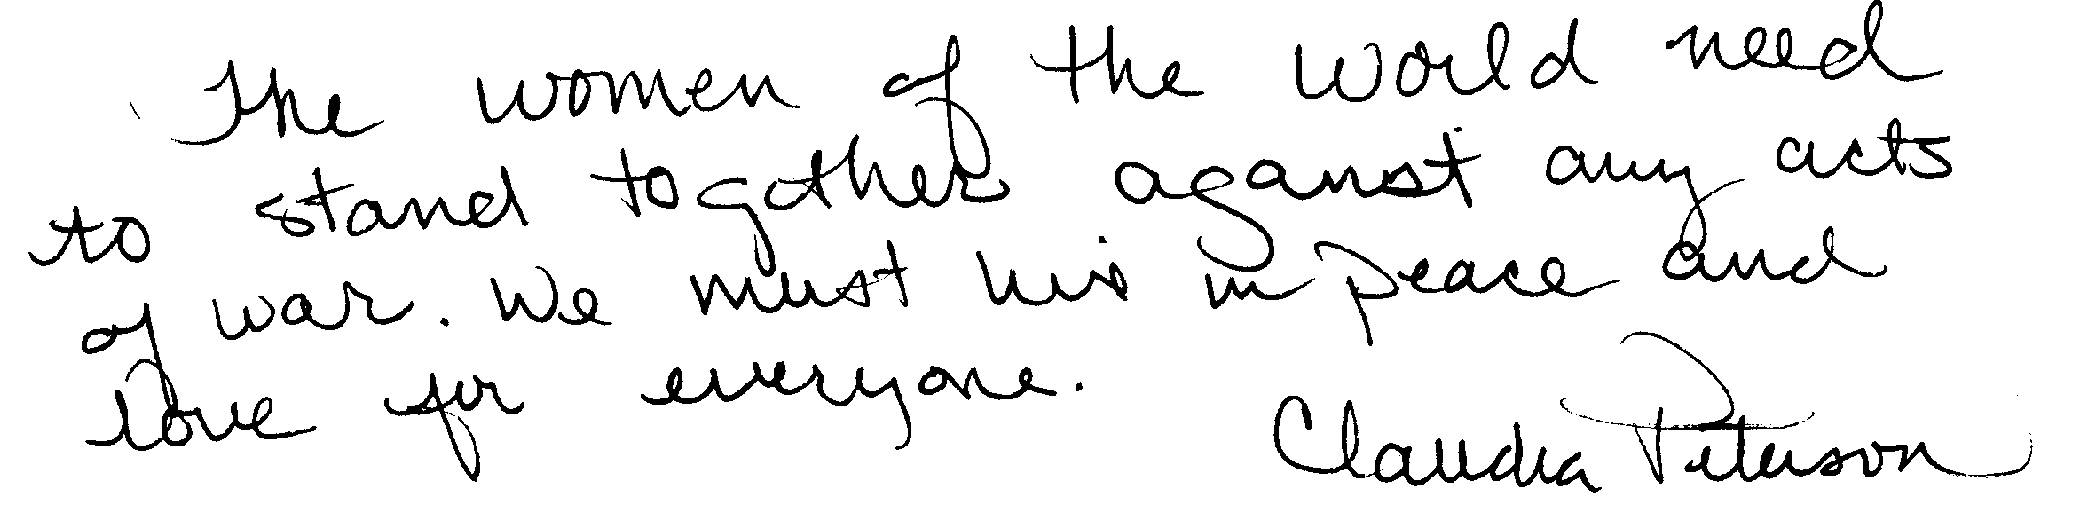 The women of the world need
to stand together against any acts
of war. We must live in peace and
love for everyone.
Claudia Peterson